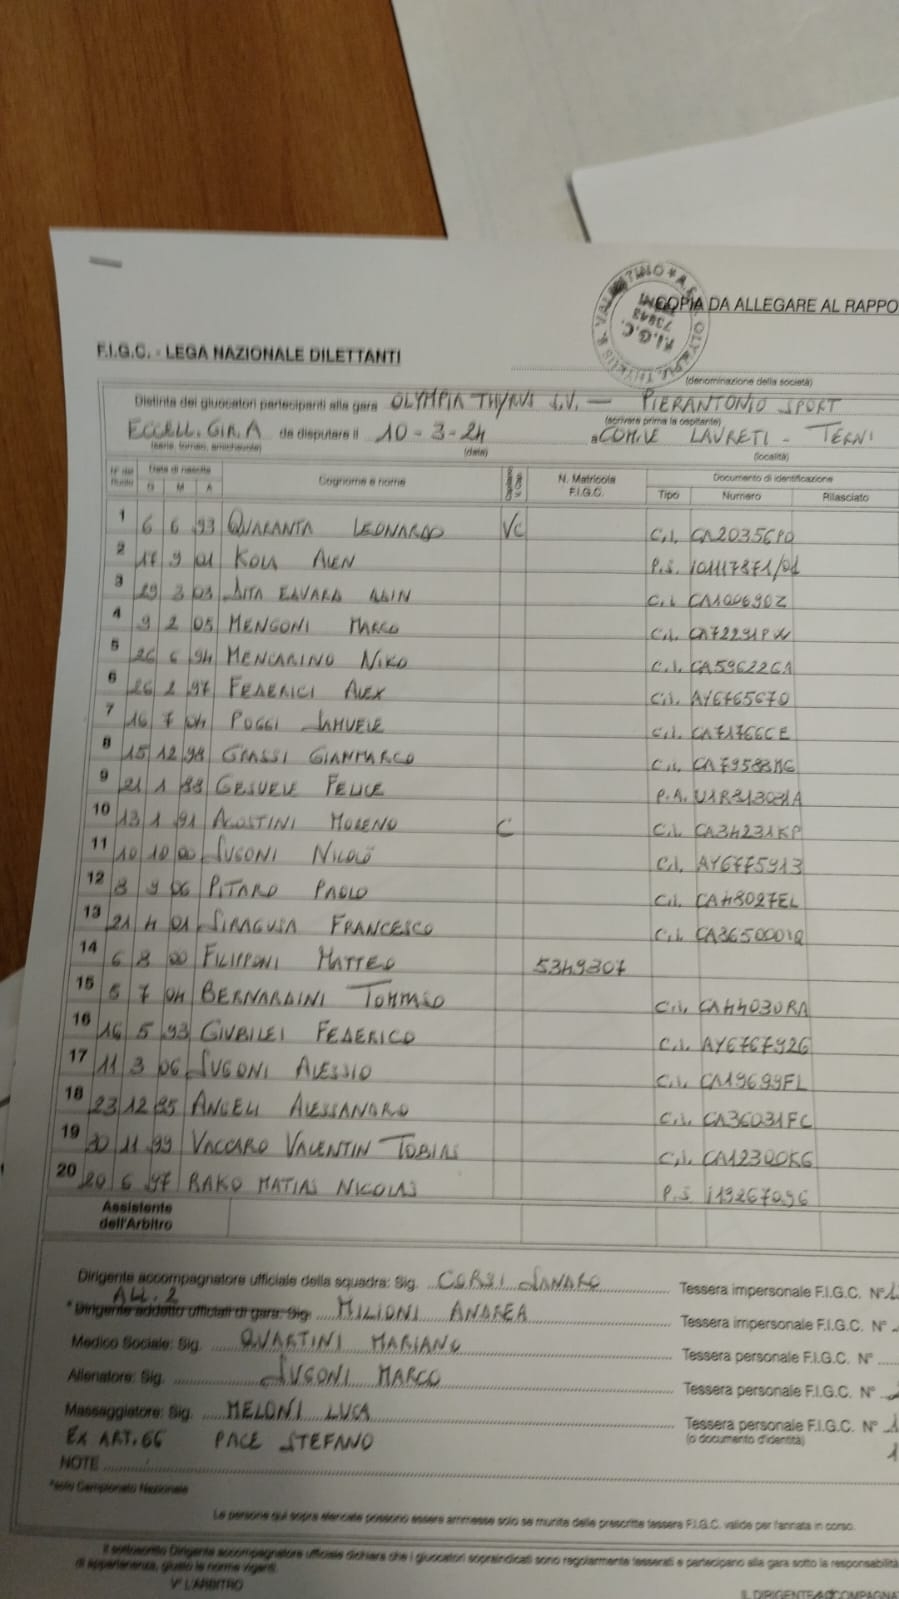 COPIA DA ALLEGARE AL RAPPO
F.I.G.C. - LEGA NAZIONALE DILETTANTI
(denominazione della società)
Distinta dei giuocatori partecipanti alla gara OLYMPIA THYRUS S.V. — PIERANTONIO SPORT
(scrivere prima la ospitante)
ECCELL. GIR. A da disputare il 10-3-24 a COM.LE LAURETI - TERNI
(serie, torneo, amichevole) (data) (località)
Data di nascita Cognome e nome N. Matricola F.I.G.C. Documento di identificazione
G M A Tipo Numero Rilasciato
1 6 6 93 QUARANTA LEONARDO VC C.I. CA20356PD
2 17 9 01 KOLA ALEN P.S.
3 29 3 03 C.I. CA10069OZ
4 9 2 05 MENGONI MARCO C.I. CA72291PW
5 26 6 94 MENCARINO NIKO C.I. CA59622GA
6 26 2 97 FEDERICI ALEX C.I. AY6765670
7 16 7 04 POGGI SAMUELE C.I. CA71766CE
8 15 12 98 GRASSI GIANMARCO C.I. CA79588MG
9 21 1 88 GESUELE FELICE P.A. U1R313031A
10 13 1 91 AGOSTINI MORENO C C.I. CA34231KP
11 10 10 00 SUGONI NICOLÒ C.I. AY6775913
12 8 9 06 PITARO PAOLO C.I. CA48027EL
13 21 4 01 SIRAGUSA FRANCESCO C.I. CA36500OIQ
14 6 8 00 FILIPPONI MATTEO 5349307
15 5 7 04 BERNARDINI TOMMASO C.I. CA44030RA
16 16 5 93 GIUBILEI FEDERICO C.I. AY6767926
17 11 3 06 SUGONI ALESSIO C.I. CA19699FL
18 23 12 95 ANGELI ALESSANDRO C.I. CA36031FC
19 30 11 99 VACCARO VALENTIN TOBIAS C.I. CA12300KG
20 20 6 97 BAKO MATIAS NICOLAS P.S.
Assistente
dell'Arbitro
Dirigente accompagnatore ufficiale della squadra: Sig. CORSI SANDRO Tessera impersonale F.I.G.C. N°
ALL. 2
* Dirigente addetto ufficiali di gara: Sig. MILIONI ANDREA Tessera impersonale F.I.G.C. N°
Medico Sociale: Sig. QUARTINI MARIANO Tessera personale F.I.G.C. N°
Allenatore: Sig. SUGONI MARCO Tessera personale F.I.G.C. N°
Massaggiatore: Sig. MELONI LUCA Tessera personale F.I.G.C. N°
EX ART. 66 PACE STEFANO (o documento d'identità)
NOTE
*solo Campionato Nazionale
Le persone qui sopra elencate possono essere ammesse solo se munite delle prescritte tessera F.I.G.C. valide per l'annata in corso.
Il sottoscritto Dirigente accompagnatore ufficiale dichiara che i giuocatori sopraindicati sono regolarmente tesserati e partecipano alla gara sotto la responsabilità
di appartenenza, giusto le norme vigenti.
V° L'ARBITRO
IL DIRIGENTE ACCOMPAGNA